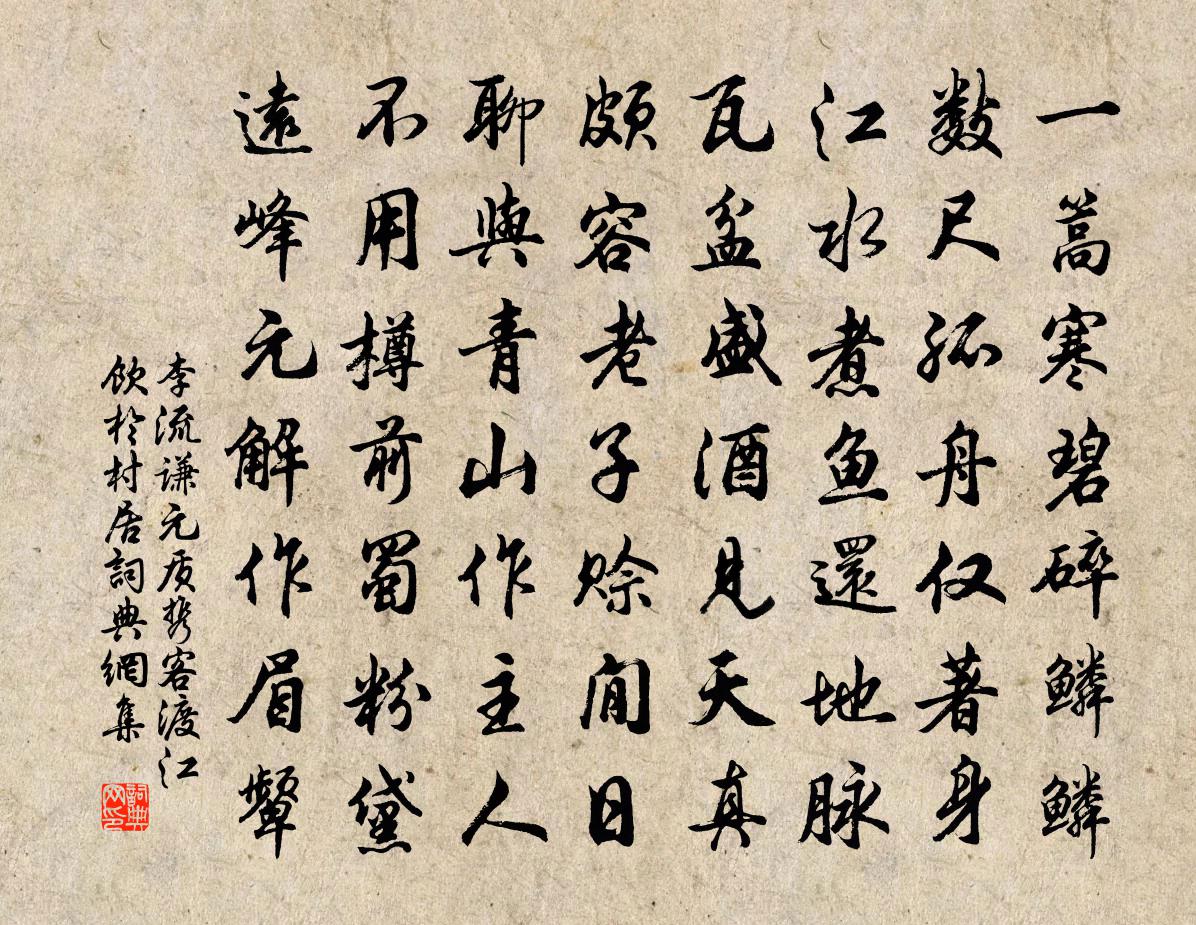 一篙寒碧碎鳞鳞
数尺孤舟仅著身
江水煮鱼還地脉
瓦盆盛酒見天真
頗容老子赊閒日
聊與青山作主人
不用樽前蜀粉黛
遠峰元解作眉顰
李流谦元质携客渡江
饮於村居詞典網集
詞典
网印